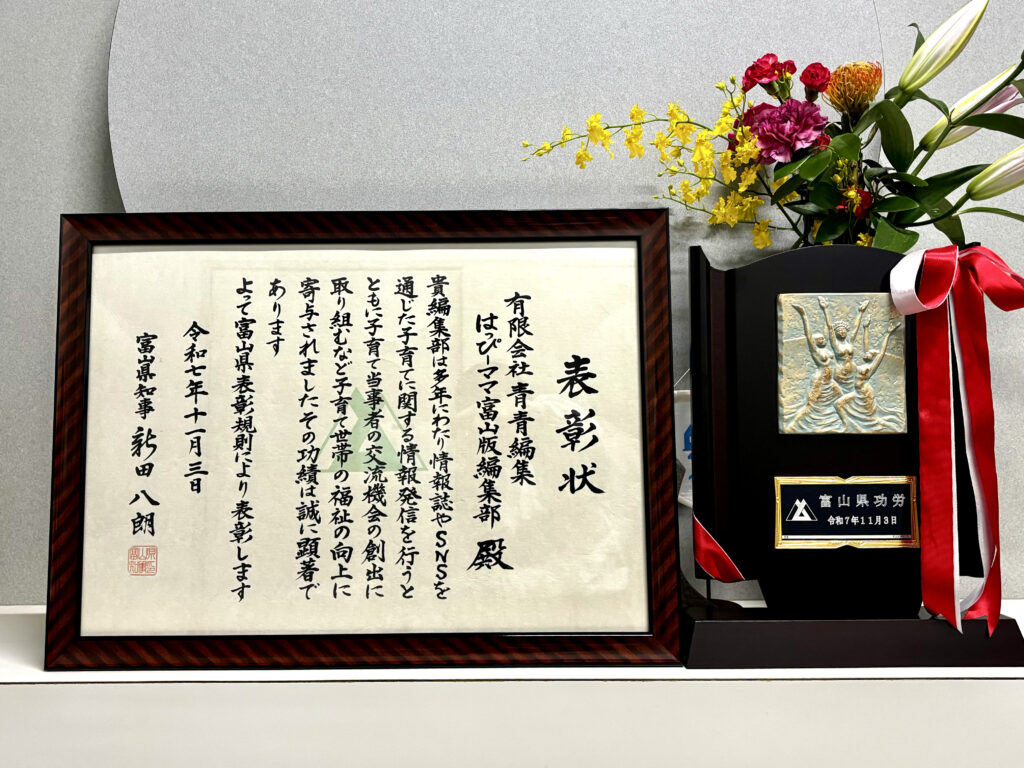 表彰状
有限会社 青青編集
はっぴーママ富山版編集部 殿
貴編集部は多年にわたり情報誌やSNSを
通じた子育てに関する情報発信を行うと
ともに子育て当事者の交流機会の創出に
取り組むなど子育て世帯の福祉の向上に
寄与されましたその功績は誠に顕著で
あります
よって富山県表彰規則により表彰します
令和七年十一月三日
富山県知事 新田八朗
富山県功労
令和7年11月3日